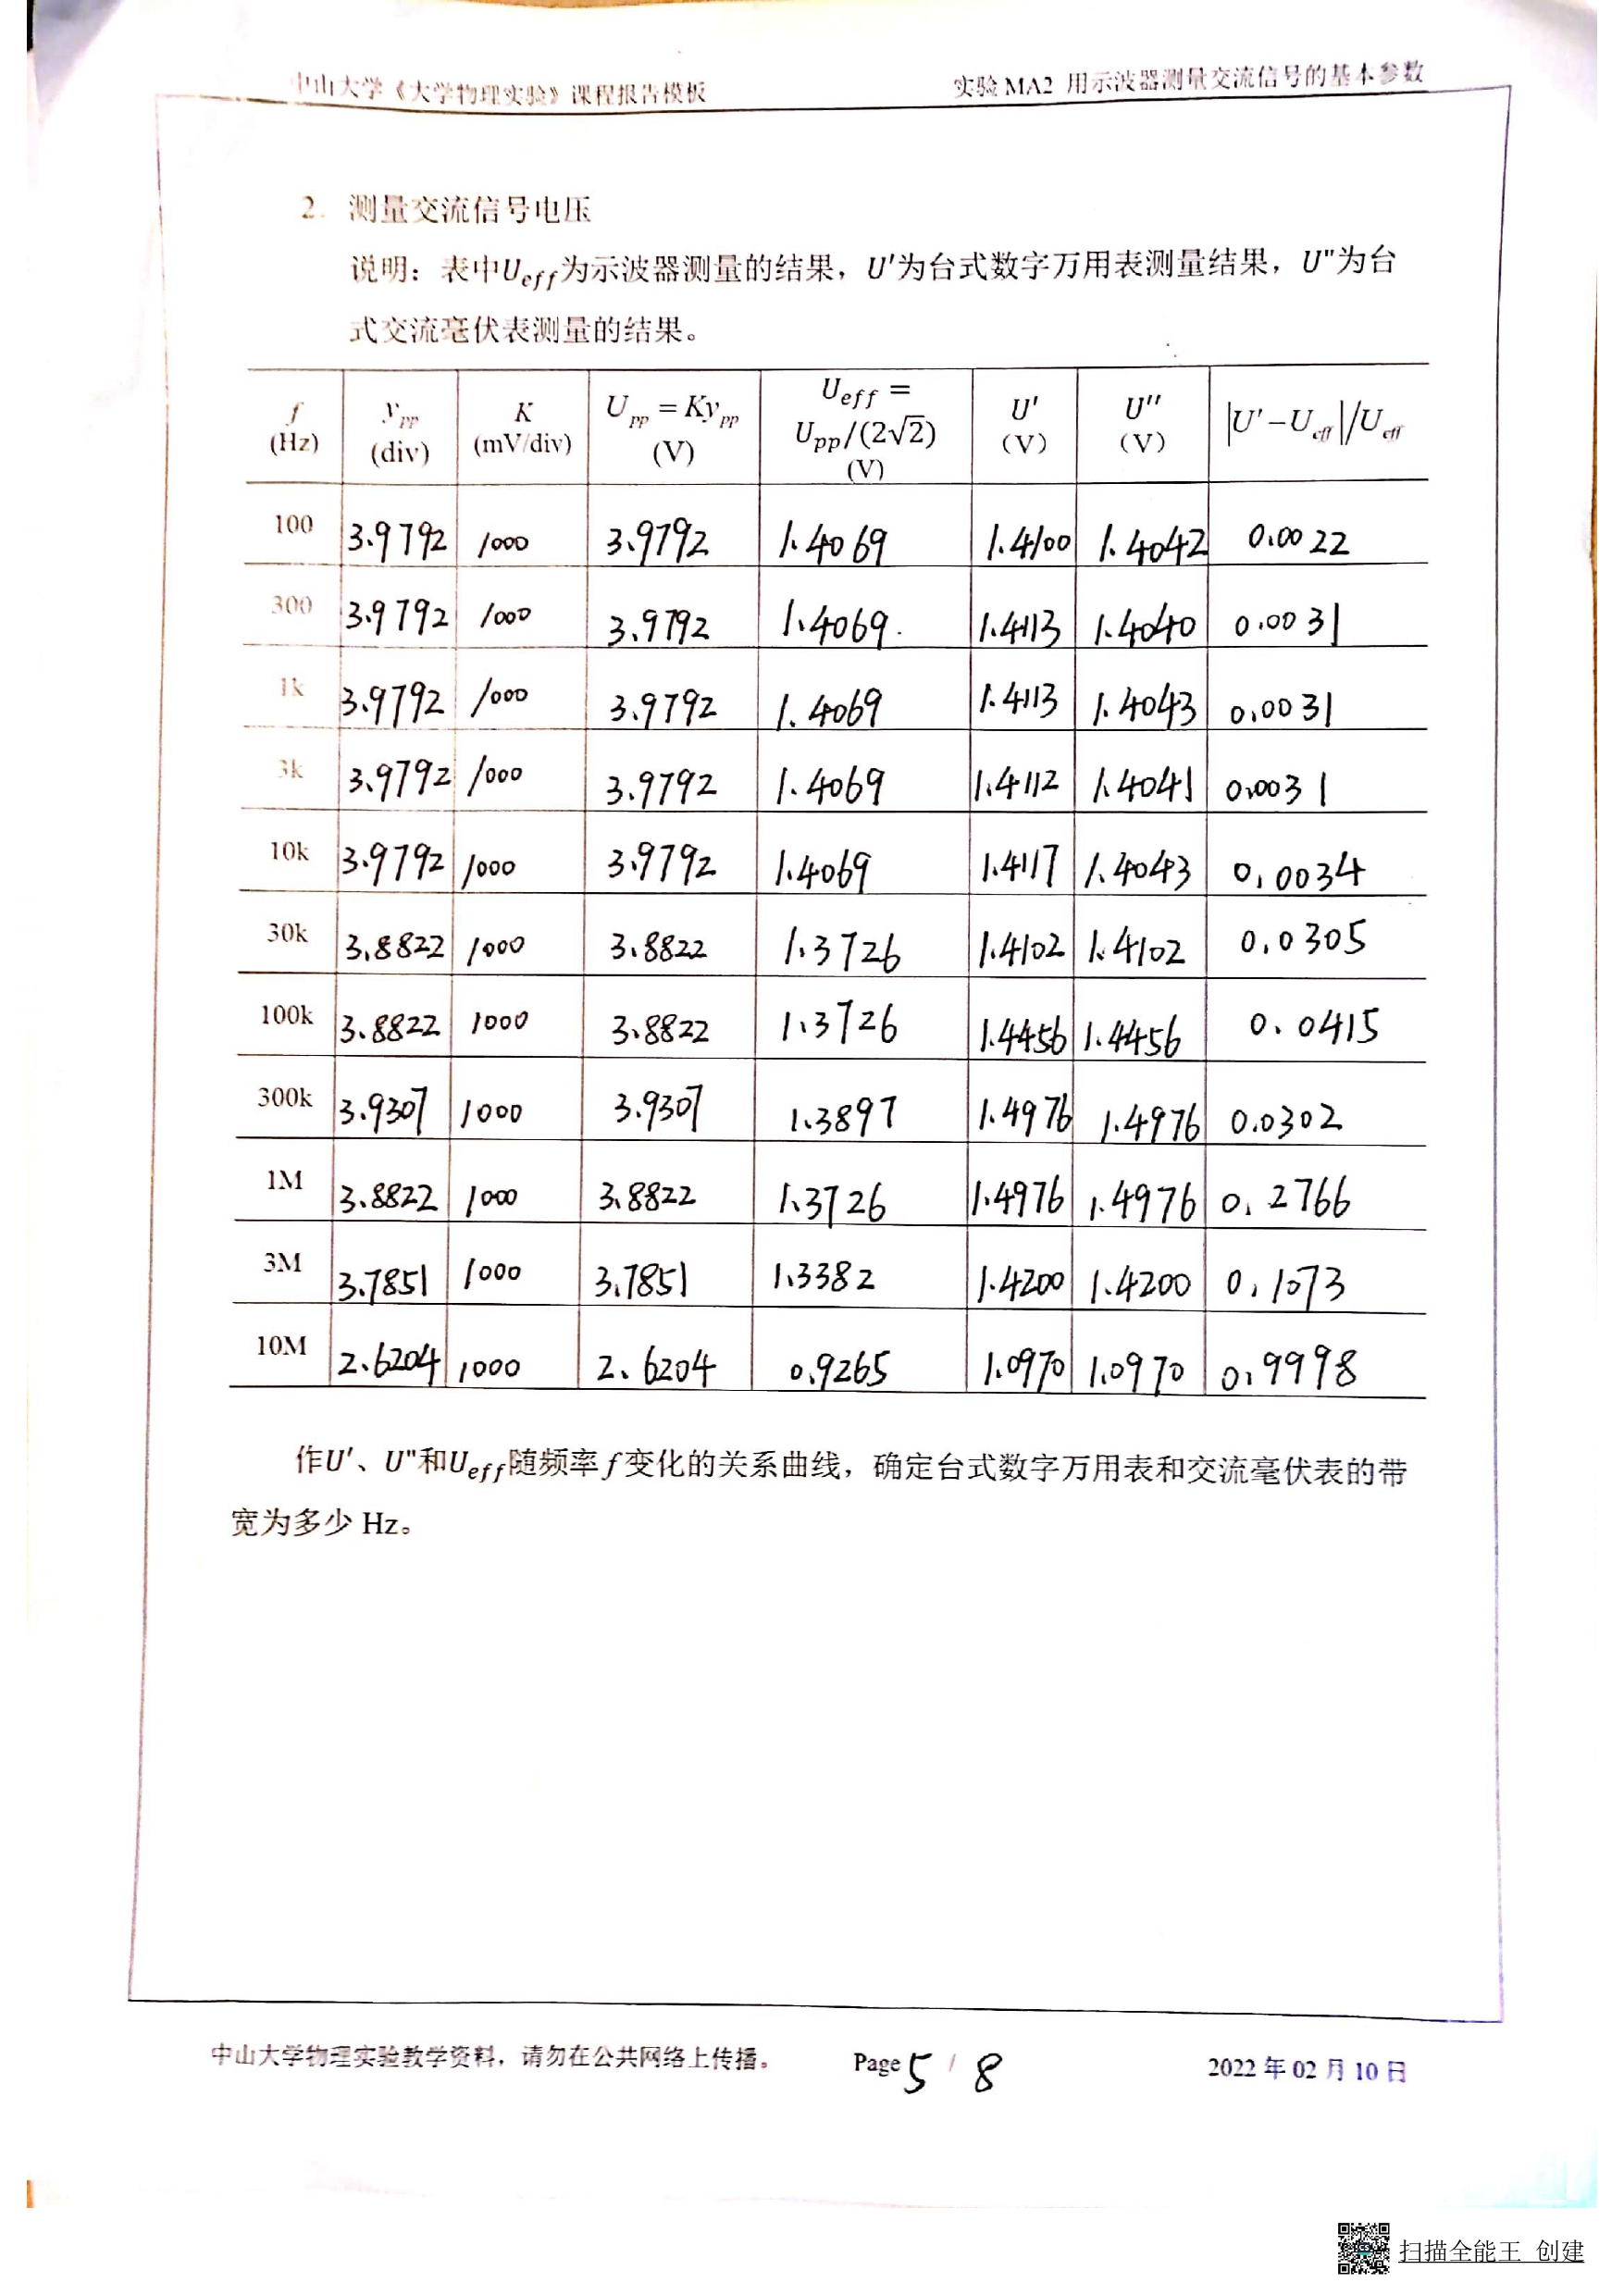 中山大学《大学物理实验》课程报告模板 实验 MA2 用示波器测量交流信号的基本参数
2. 测量交流信号电压
说明：表中U_eff为示波器测量的结果，U′为台式数字万用表测量结果，U″为台
式交流毫伏表测量的结果。
f (Hz) y_pp (div) K (mV/div) U_pp = Ky_pp (V) U_eff = U_pp/(2√2) (V) U′ (V) U″ (V) |U′−U_eff|/U_eff
100 3.9792 1000 3.9792 1.4069 1.4100 1.4042 0.0022
300 3.9792 1000 3.9792 1.4069 1.4113 1.4040 0.0031
1k 3.9792 1000 3.9792 1.4069 1.4113 1.4043 0.0031
3k 3.9792 1000 3.9792 1.4069 1.4112 1.4041 0.0031
10k 3.9792 1000 3.9792 1.4069 1.4117 1.4043 0.0034
30k 3.8822 1000 3.8822 1.3726 1.4102 1.4102 0.0305
100k 3.8822 1000 3.8822 1.3726 1.4456 1.4456 0.0415
300k 3.9307 1000 3.9307 1.3897 1.4976 1.4976 0.0302
1M 3.8822 1000 3.8822 1.3726 1.4976 1.4976 0.2766
3M 3.7851 1000 3.7851 1.3382 1.4200 1.4200 0.1073
10M 2.6204 1000 2.6204 0.9265 1.0970 1.0970 0.9998
作U′、U″和U_eff随频率f变化的关系曲线，确定台式数字万用表和交流毫伏表的带
宽为多少 Hz。
中山大学物理实验教学资料，请勿在公共网络上传播。 Page 5 / 8 2022 年 02 月 10 日
扫描全能王 创建